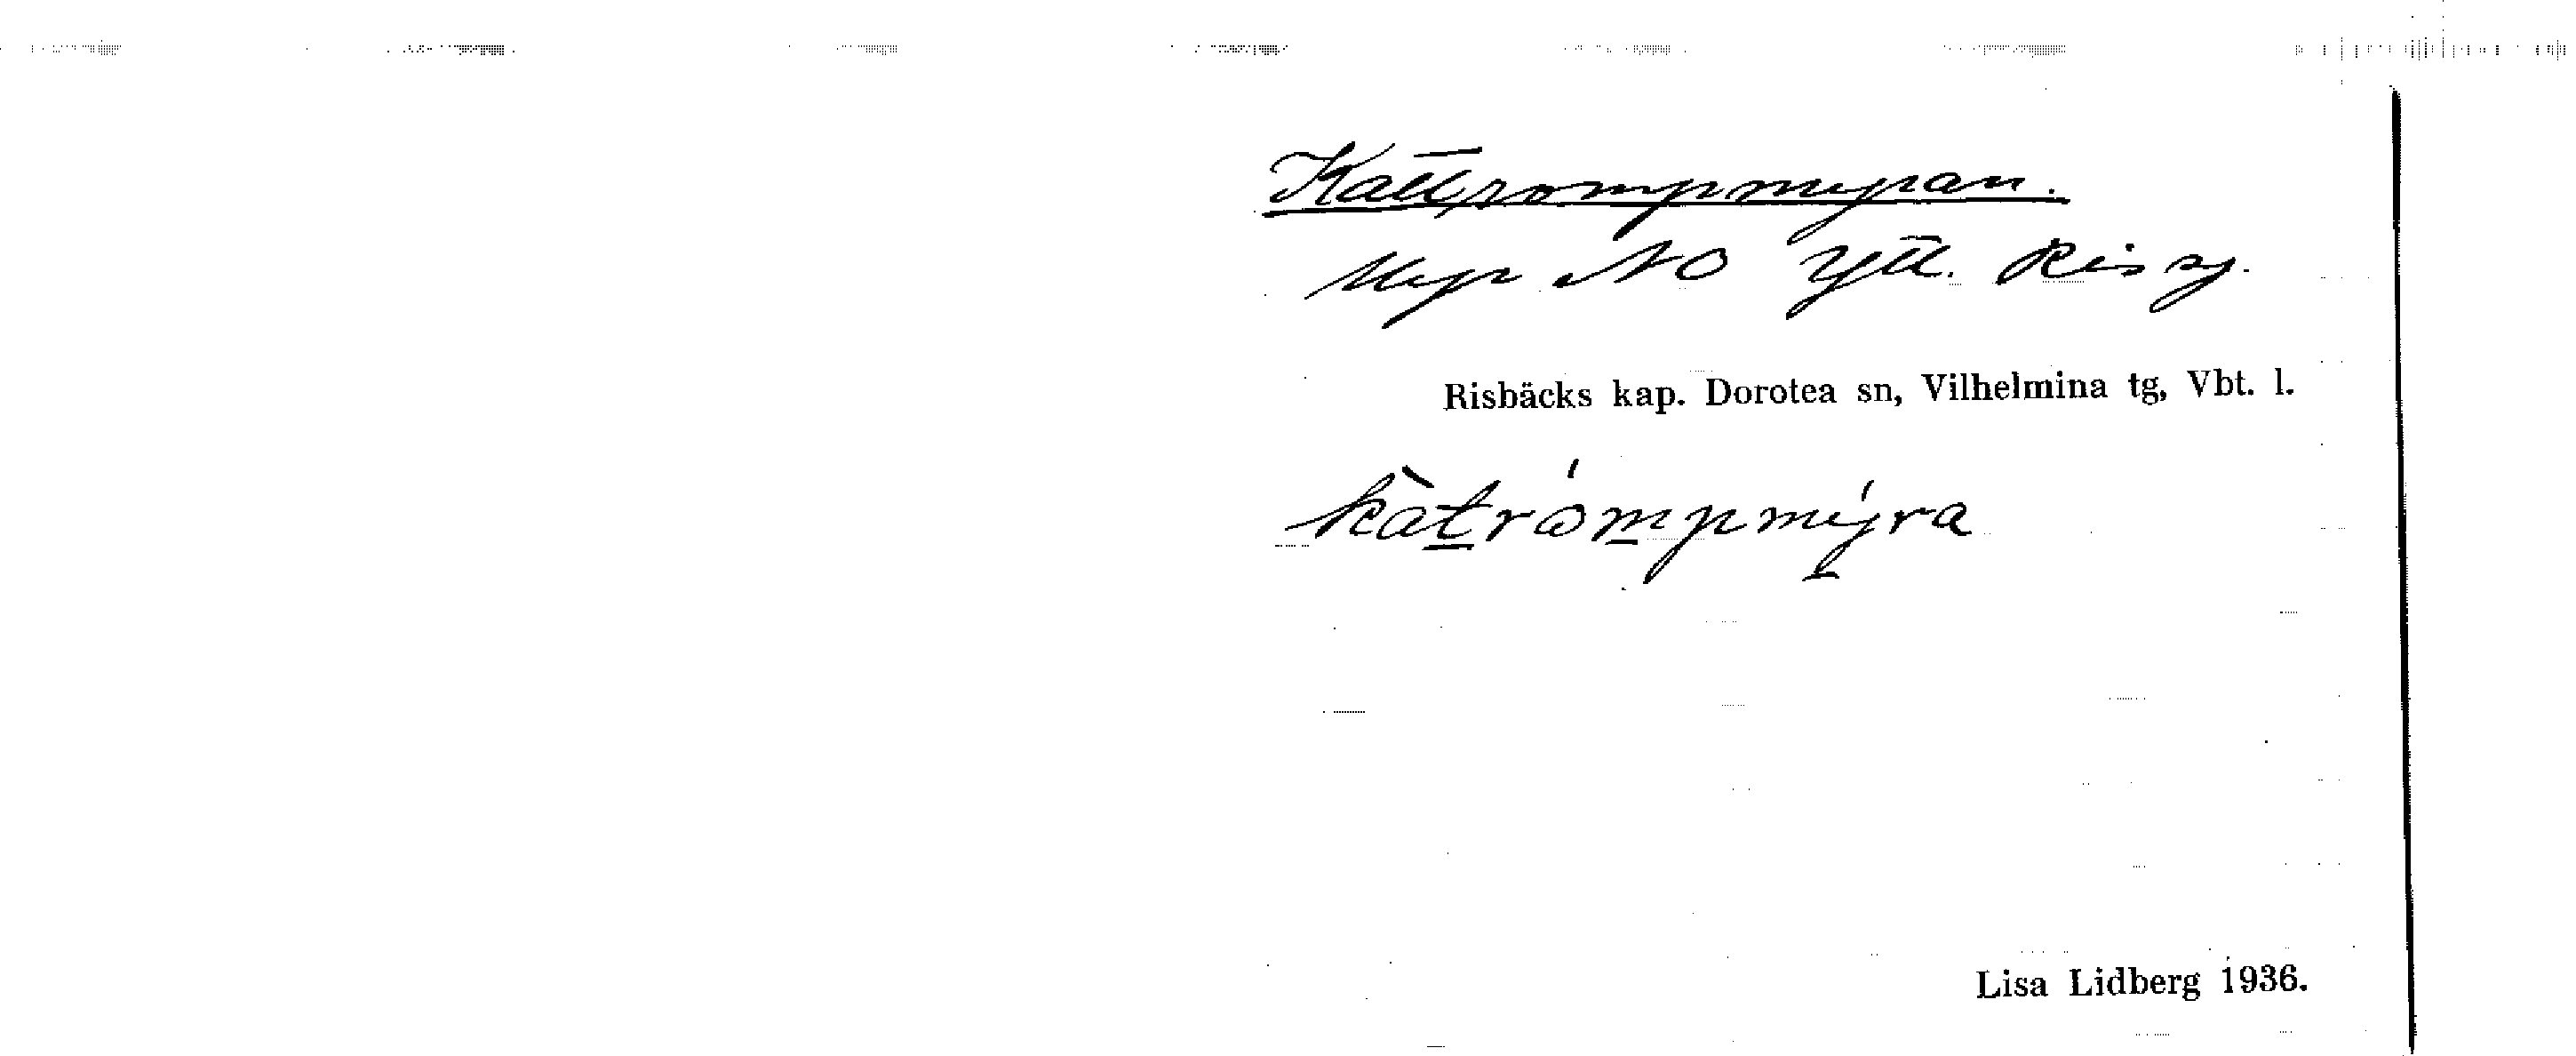 Kattrompmyran.
Myr NO Ytt. Rissj.
Risbäcks kap. Dorotea sn, Vilhelmina tg, Vbt. l.
kàtrómpmýra
Lisa Lidberg 1936.